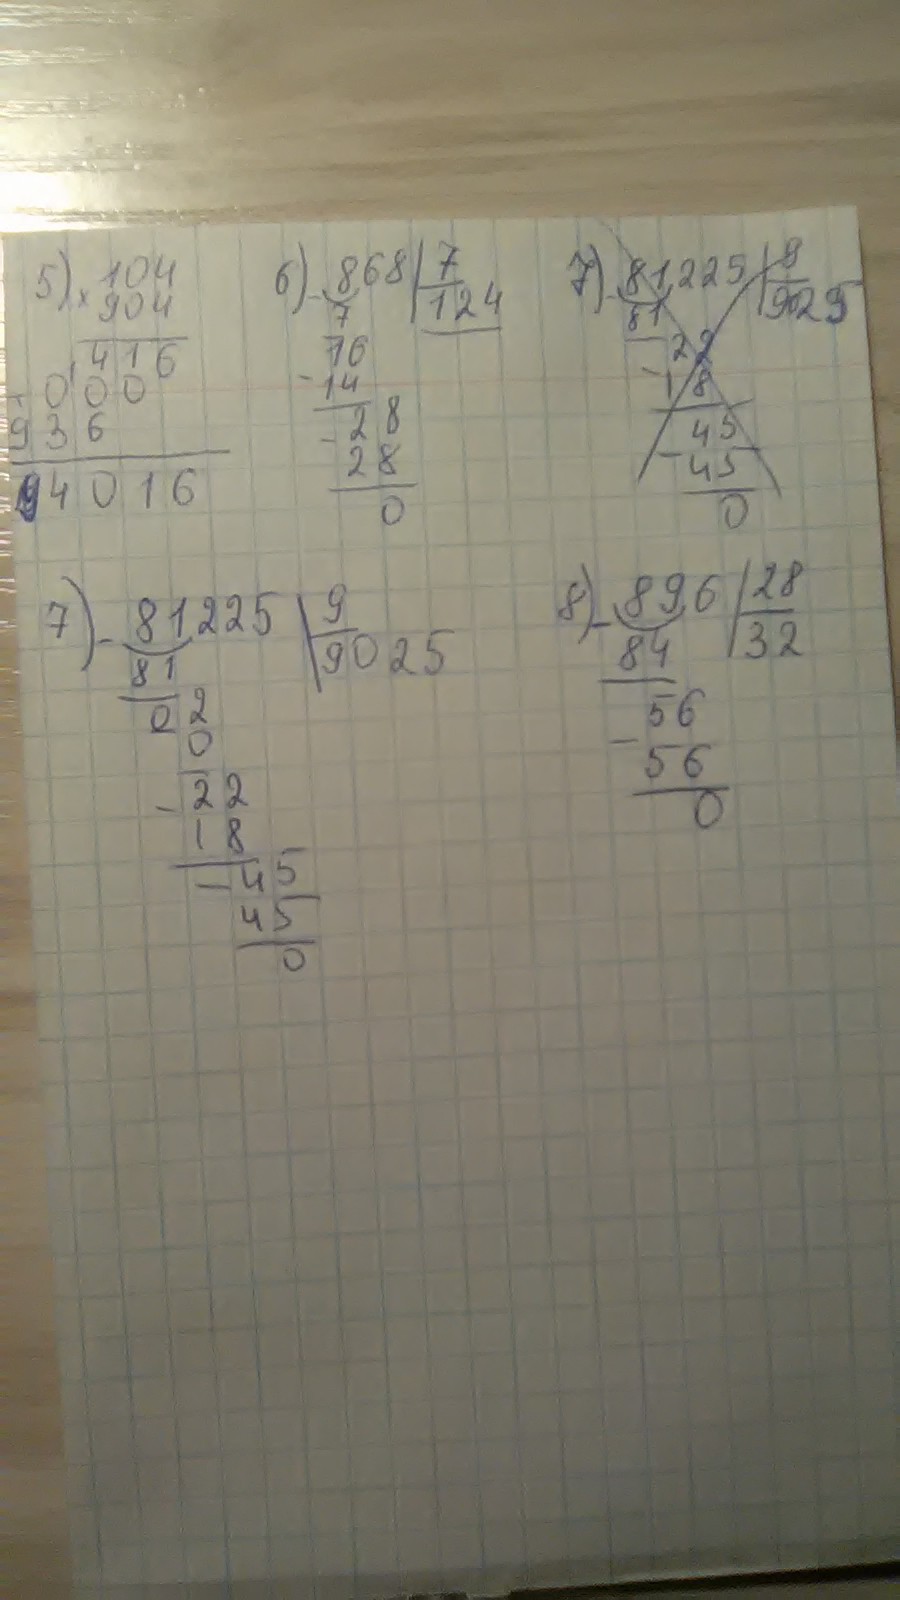 5) 104
× 904
416
000
936
94016
6) - 868 | 7
7 | 124
16
- 14
28
- 28
0
7) - 81225 | 9
81 | 9025
22
- 18
45
- 45
0
7) - 81225 | 9
81 | 9025
02
0
- 22
18
- 45
45
0
8) - 896 | 28
84 | 32
56
- 56
0